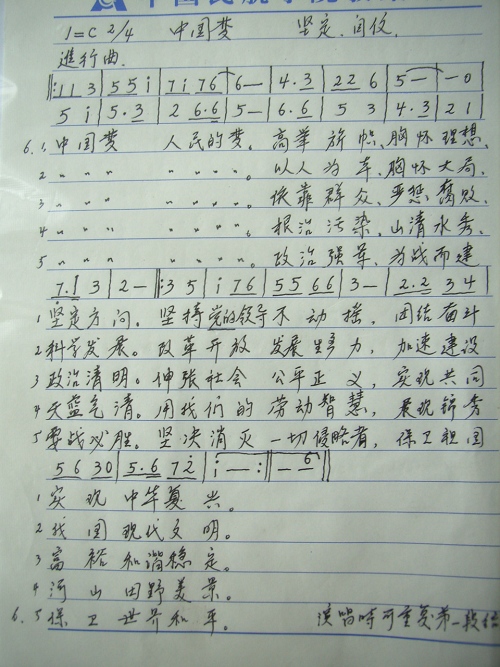 1=C 2/4 中国梦 坚定.自信
進行曲.
‖:1 1 3 | 5 5 i | 7 i 7 6 | 6 — | 4· 3 | 2 2 6 | 5 — | — 0
5 i | 5· 3 | 2 6·6 | 5 — | 6·6 | 5 3 | 4·3 | 2 1
6.1.中国梦 人民的梦。高举旗帜、胸怀理想、
2 〃 〃 〃 〃 〃 〃 〃。以人为本、胸怀大局、
3 〃 〃 〃 〃 〃 〃 〃。依靠群众、严惩腐败、
4 〃 〃 〃 〃 〃 〃 〃。根治污染、山清水秀、
5 〃 〃 〃 〃 〃 〃 〃。政治强军、为战而建
7·1 3 | 2 — ‖: 3 5 | i 7 6 | 5 5 6 6 | 3 — | 2·2 3 4 |
1坚定方向。坚持党的领导不动摇,团结奋斗
2科学发展。改革开放 发展生产力,加速建设
3政治清明。伸张社会 公平正义,实现共同
4天蓝气清。用我们的劳动智慧,展现锦秀
5要战必胜。坚决消灭一切侵略者,保卫祖国
5 6 3 0 | 5·6 7 2 | i — :‖ — 6 ‖
1实现中华复兴。
2我国现代文明。
3富裕和谐稳定。
4河山田野美景。
6.5保卫世界和平。 演唱时可重复第一段结